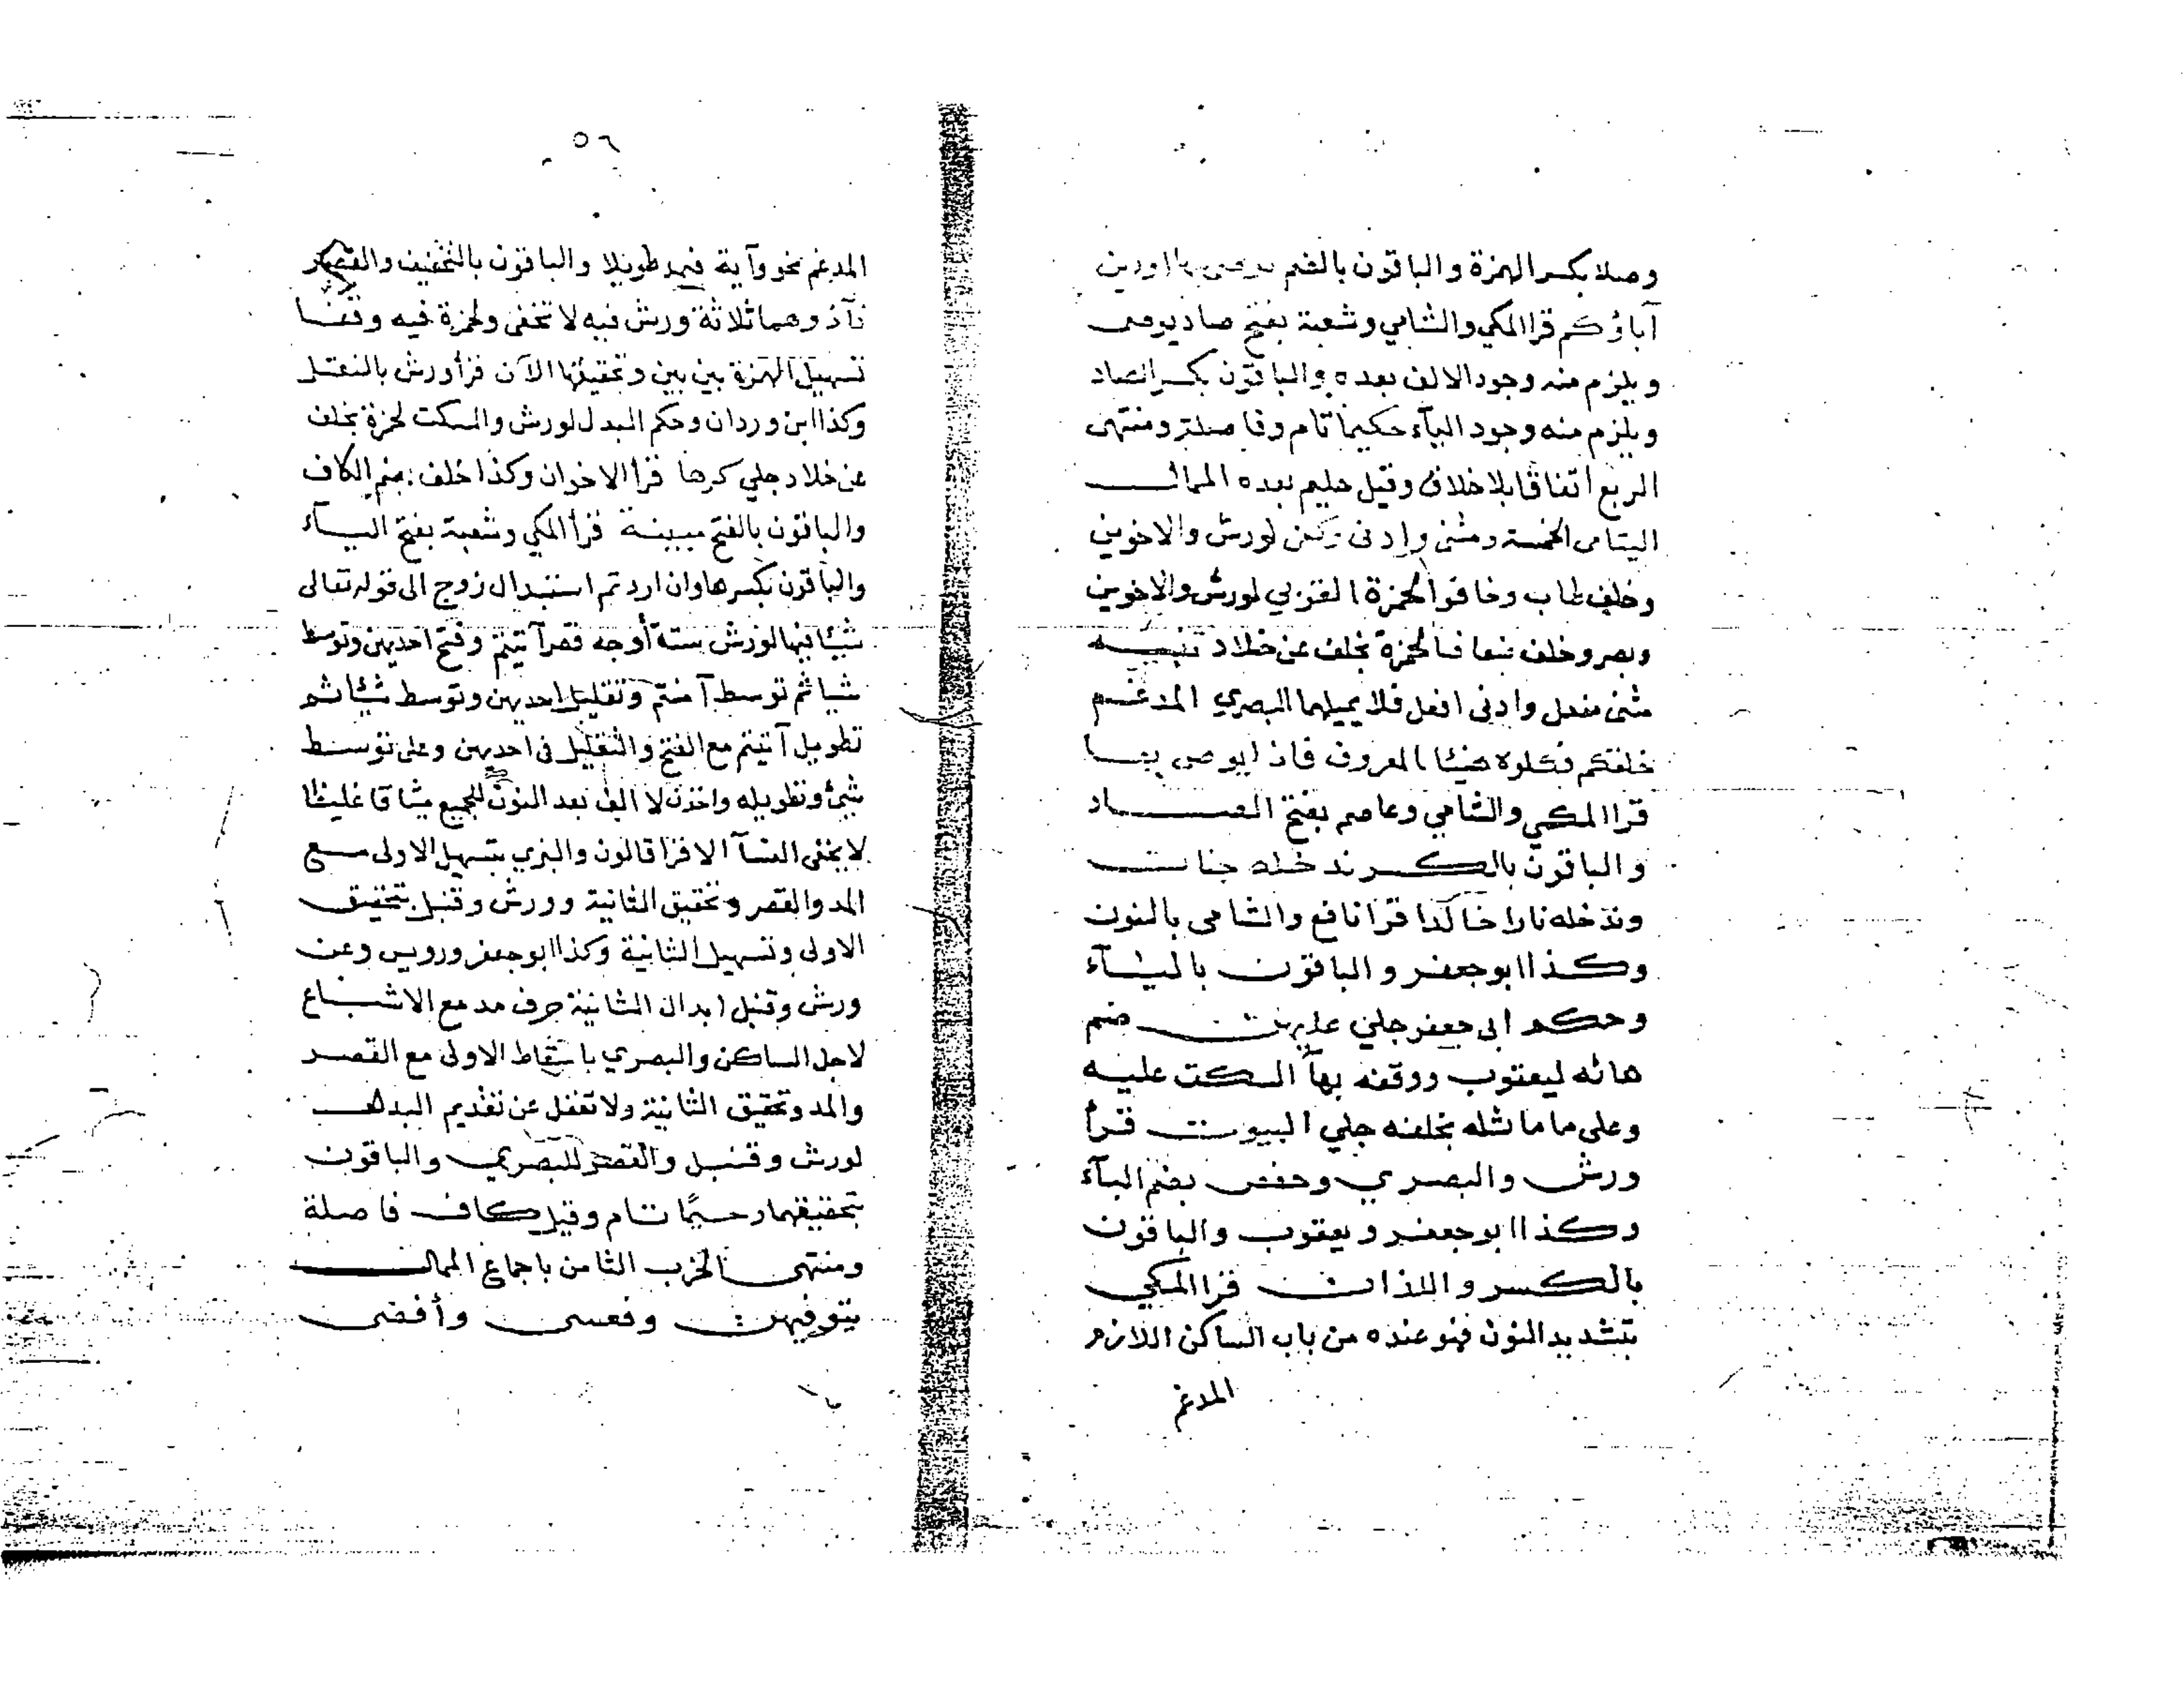 وصلا بكسر الهمزة والباقون بالضم يوصى بها اودين
آباؤكم قرا المكي والشامي وشعبة بفتح صاد يوصى
ويلزم منه وجود الالف بعده والباقون بكسر الصاد
ويلزم منه وجود اليآء حكيما تام وفاصلة ومنتهى
الربع اتفاقا بلا خلاف وقيل حليم بعده الممال
اليتامى الخمسة ومثنى وادنى لورش والاخوين
وخلف طاب وخافوا لحمزة القربى لورش والاخوين
وبصر وخلف ضعافا لحمزة بخلف عن خلاد تنبيه
مثنى مفعل وادنى افعل فلا يميلهما البصري المدغم
خلقكم فكلوه هنيئا المعروف فاذا يوصى بها
قرا المكي والشامي وعاصم بفتح الصاد
والباقون بالكسر ندخله جنات
وندخله نارا خالدا قرا نافع والشامي بالنون
وكذا ابوجعفر والباقون باليآء
وحكم ابى جعفر جلي عليهن ضم
هائه ليعقوب ووقفه بهآ السكت عليه
وعلى ما ماثله بخلفه جلي البيوت قرأ
ورش والبصري وحفص بضم البآء
وكذا ابوجعفر ويعقوب والباقون
بالكسر واللذان قرا المكي
بتشديد النون فهو عنده من باب الساكن اللازم
المدغم
٥٦
المدغم نحو وآبة فيمد طويلا والباقون بالتخفيف والقصر
فآذوهما ثلاثة ورش فيه لا تخفى ولحمزة فيه وقفا
تسهيل الهمزة بين بين وتحقيقها الآن قرأ ورش بالنقل
وكذا ابن وردان وحكم البدل لورش والسكت لحمزة بخلف
عن خلاد جلي كرها قرأ الاخوان وكذا خلف بضم الكاف
والباقون بالفتح مبينة قرأ المكي وشعبة بفتح اليآء
والباقون بكسرها وان اردتم استبدال زوج الى قوله تعالى
شيئا فيها لورش ستة أوجه قصر آتيتم وفتح احديهن وتوسط
شيئا ثم توسط آتيتم وتقليل احديهن وتوسط شيئا ثم
تطويل آتيتم مع الفتح والتقليل فى احديهن وعلى توسط
شيئ وتطويله واخذن لا الف بعد النون للجميع ميثاقا غليظا
لا يخفى النسآ الا قرا قالون والبزي بتسهيل الاولى مع
المد والقصر وتحقيق الثانية وورش وقنبل بتحقيق
الاولى وتسهيل الثانية وكذا ابوجعفر ورويس وعن
ورش وقنبل ابدال الثانية حرف مد مع الاشباع
لاجل الساكن والبصري باسقاط الاولى مع القصر
والمد وتحقيق الثانية ولا تغفل عن تقديم البدل
لورش وقنبل والقصر للبصري والباقون
بتحقيقهما رحيمًا تام وقيل كاف فاصلة
ومنتهى الحزب الثامن باجماع الممال
يتوفيهن وفعسى وأفضى